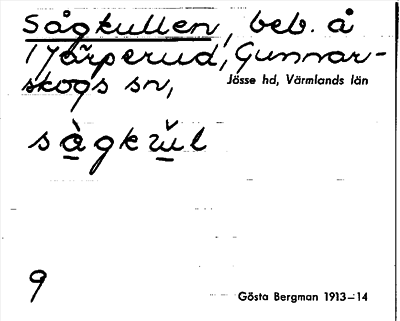 Sågkullen, beb. å
Gunnar-
skogs sn, Jösse hd, Värmlands län
9
Gösta Bergman 1913–14